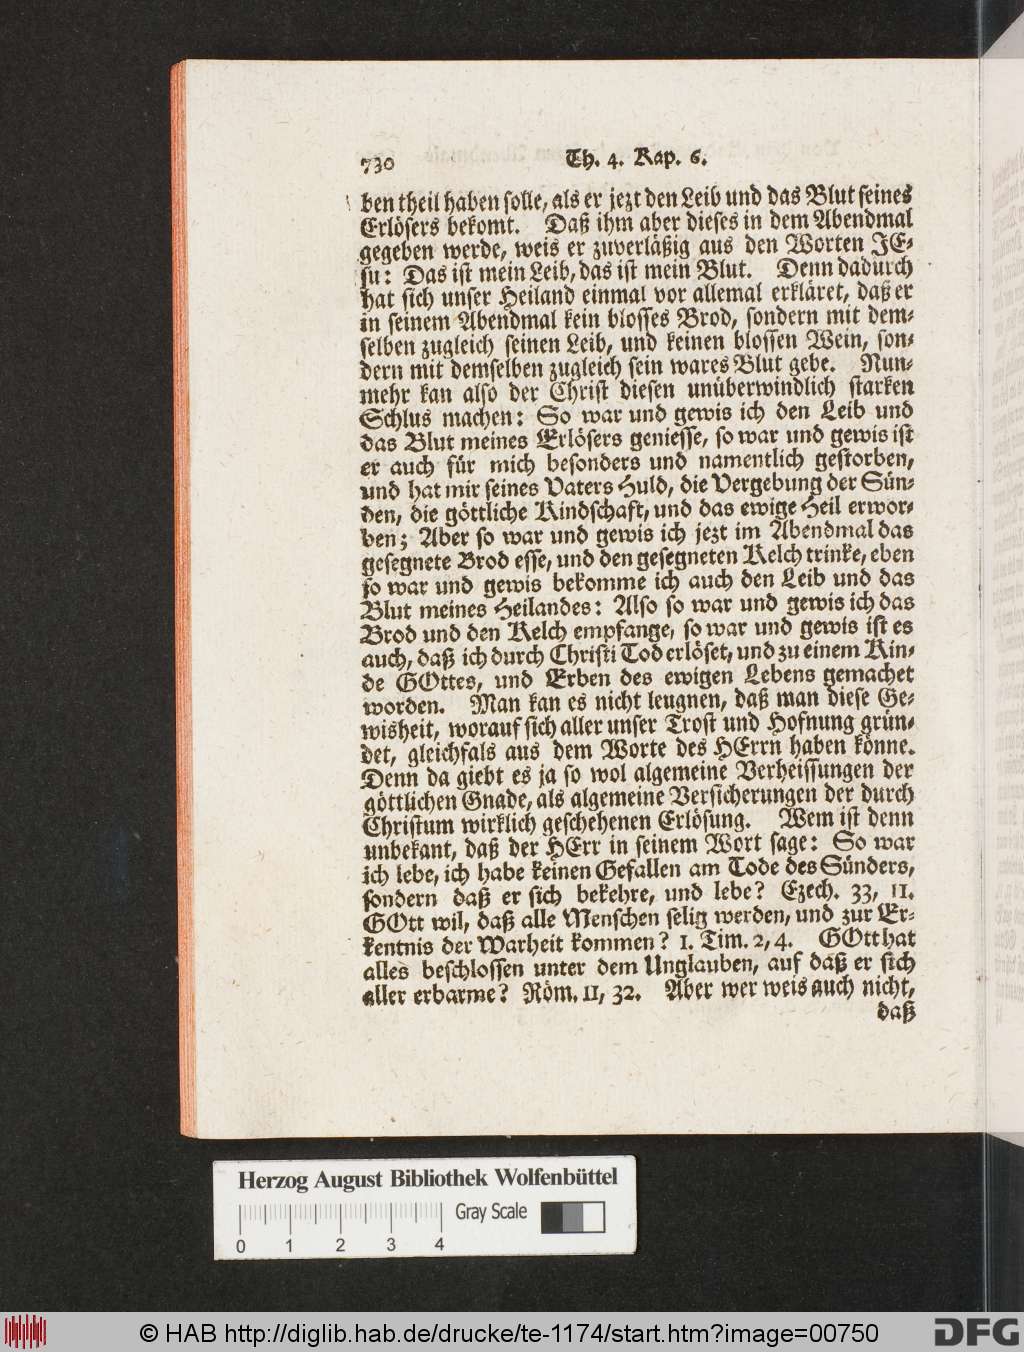 730 Th. 4. Kap. 6.
ben theil haben solle, als er jezt den Leib und das Blut seines
Erlösers bekomt. Daß ihm aber dieses in dem Abendmal
gegeben werde, weis er zuverläßig aus den Worten JE-
su: Das ist mein Leib, das ist mein Blut. Denn dadurch
hat sich unser Heiland einmal vor allemal erkläret, daß er
in seinem Abendmal kein blosses Brod, sondern mit dem-
selben zugleich seinen Leib, und keinen blossen Wein, son-
dern mit demselben zugleich sein wares Blut gebe. Nun-
mehr kan also der Christ diesen unüberwindlich starken
Schlus machen: So war und gewis ich den Leib und
das Blut meines Erlösers geniesse, so war und gewis ist
er auch für mich besonders und namentlich gestorben,
und hat mir seines Vaters Huld, die Vergebung der Sün-
den, die göttliche Kindschaft, und das ewige Heil erwor-
ben; Aber so war und gewis ich jezt im Abendmal das
gesegnete Brod esse, und den gesegneten Kelch trinke, eben
so war und gewis bekomme ich auch den Leib und das
Blut meines Heilandes: Also so war und gewis ich das
Brod und den Kelch empfange, so war und gewis ist es
auch, daß ich durch Christi Tod erlöset, und zu einem Kin-
de GOttes, und Erben des ewigen Lebens gemachet
worden. Man kan es nicht leugnen, daß man diese Ge-
wisheit, worauf sich aller unser Trost und Hofnung grün-
det, gleichfals aus dem Worte des HErrn haben könne.
Denn da giebt es ja so wol algemeine Verheissungen der
göttlichen Gnade, als algemeine Versicherungen der durch
Christum wirklich geschehenen Erlösung. Wem ist denn
unbekant, daß der HErr in seinem Wort sage: So war
ich lebe, ich habe keinen Gefallen am Tode des Sünders,
sondern daß er sich bekehre, und lebe? Ezech. 33, 11.
GOtt wil, daß alle Menschen selig werden, und zur Er-
kentnis der Warheit kommen? 1. Tim. 2, 4. GOtt hat
alles beschlossen unter dem Unglauben, auf daß er sich
aller erbarme? Röm. 11, 32. Aber wer weis auch nicht,
daß
Herzog August Bibliothek Wolfenbüttel
Gray Scale
0 1 2 3 4
© HAB http://diglib.hab.de/drucke/te-1174/start.htm?image=00750
DFG